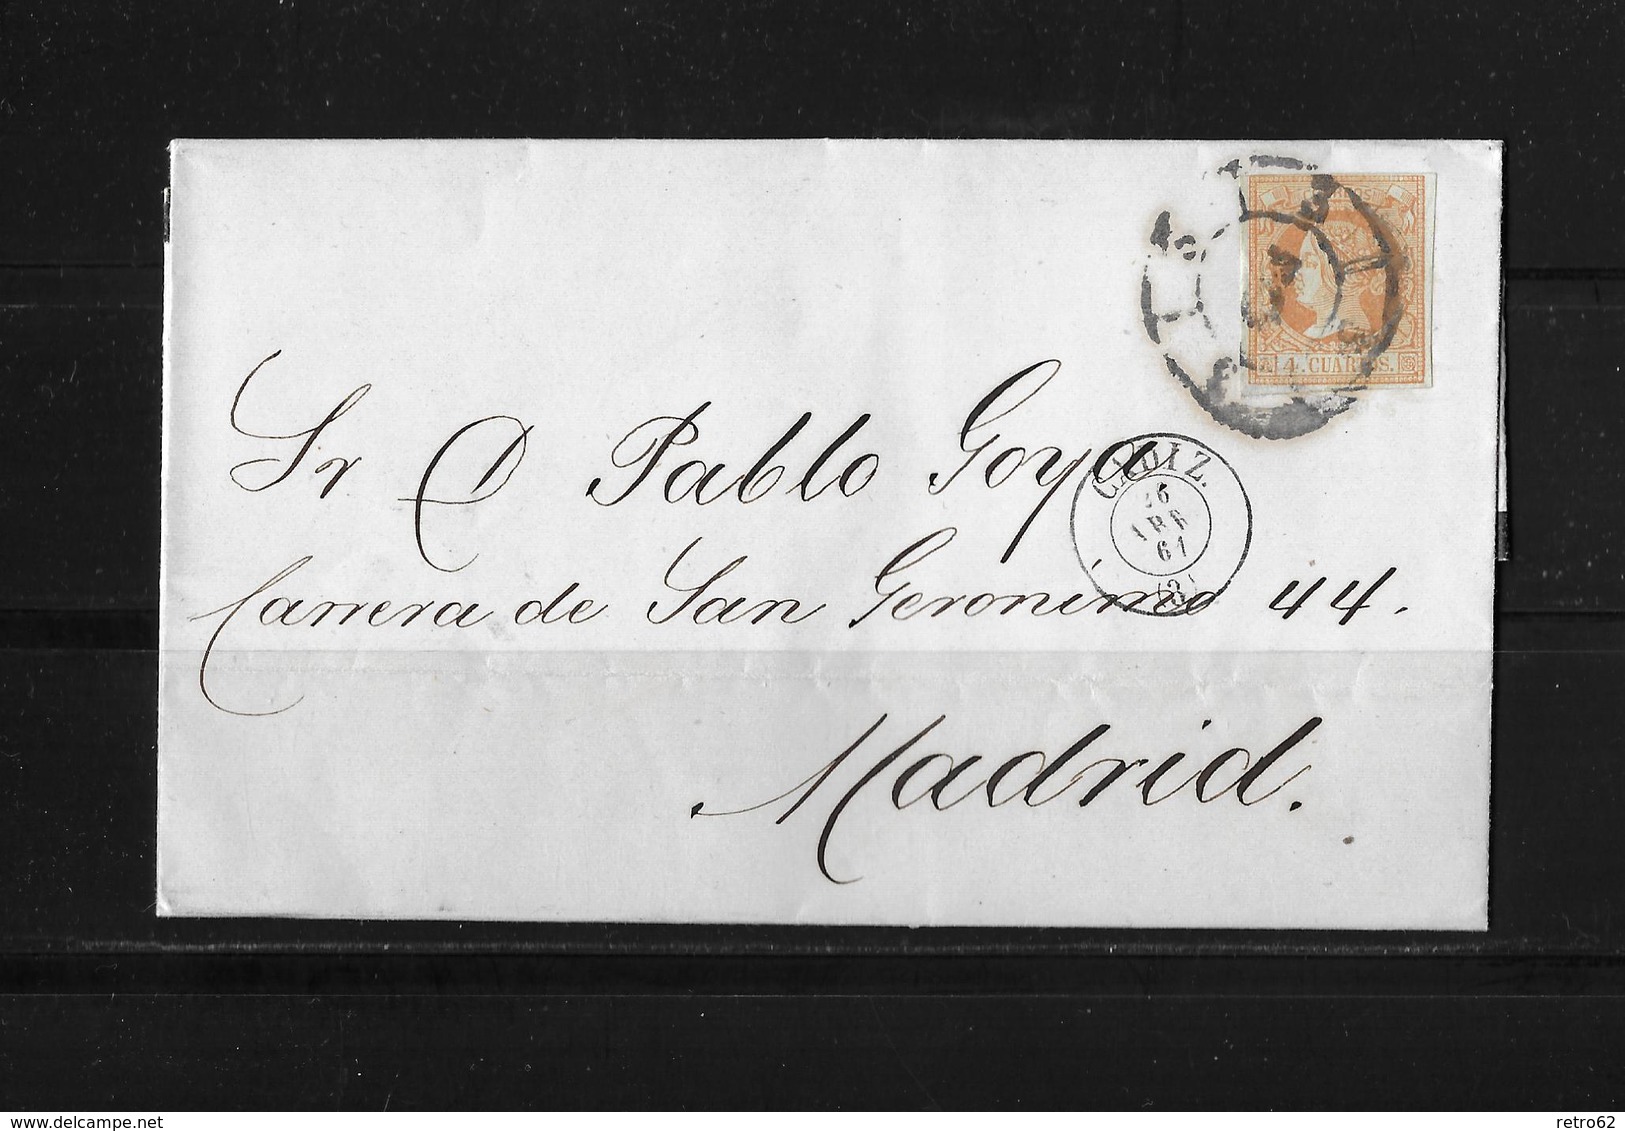 CORREOS
4 CUARTOS.
Sr D Pablo Goya
CADIZ.
26
ABR
61
(3)
Carrera de San Geronimo 44.
Madrid.
www.delcampe.net
retro62